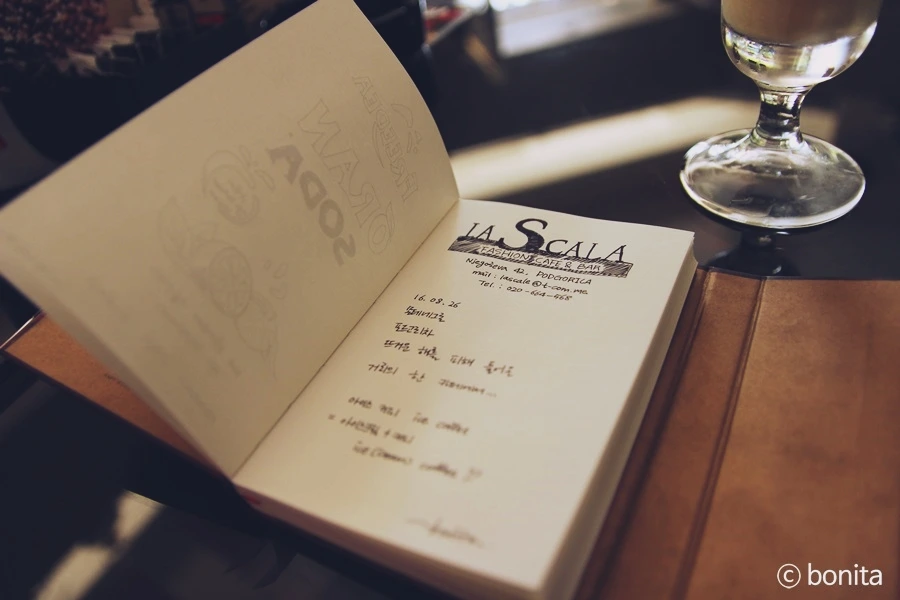 LA SCALA
FASHION CAFE & BAR
Njegoševa 42, PODGORICA
mail : lascala@t-com.me
Tel. : 020-664-568
16. 08. 25
몬테네그로
포드고리차
뜨거운 해를 피해 들어온
거리의 한
아이스 커피 ice coffee
= 아이스크림 + 커피
ice (cream) coffee !!
SODA
ORAN
ⓒ bonita